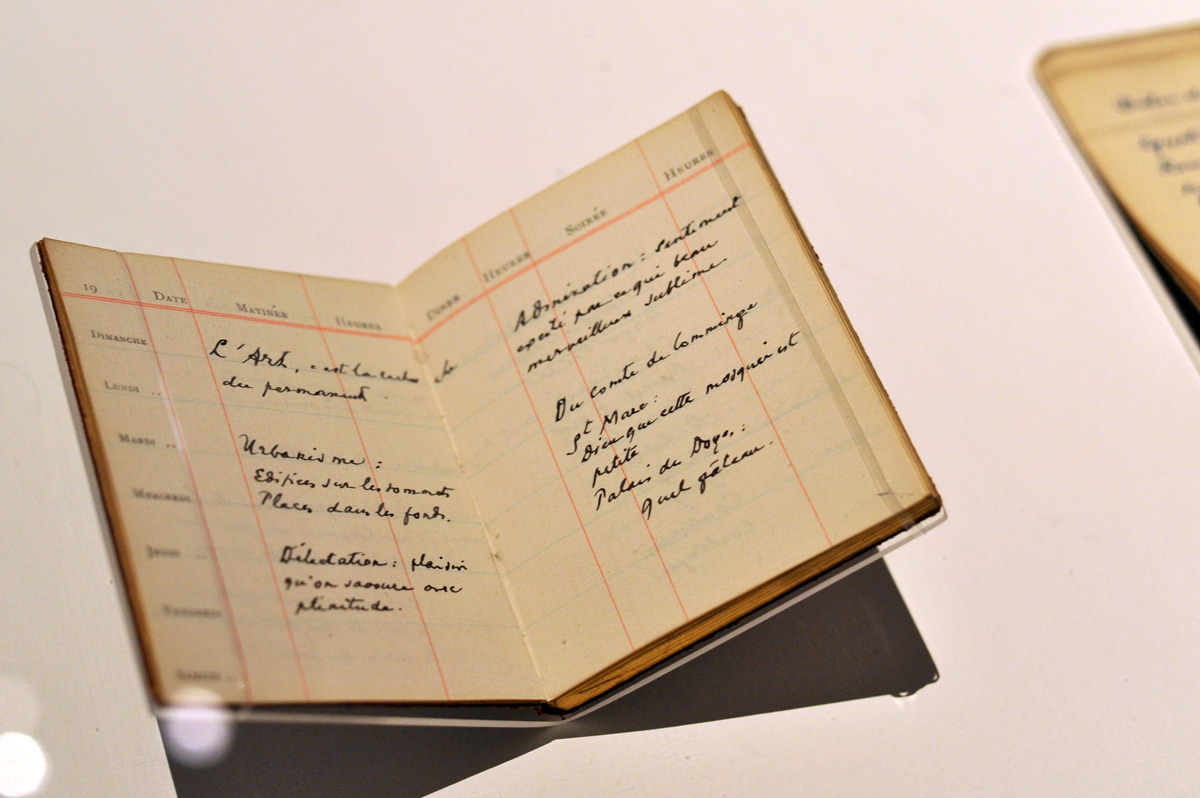 19 DATE MATINÉE HEURES
DIMANCHE
LUNDI ..
MARDI ..
MERCREDI
JEUDI ..
VENDREDI
SAMEDI ..
L'Art, c'est la
du permanent.
Urbanisme :
Edifices sur les sommets
Places dans les fonds.
Délectation : plaisir
qu'on savoure avec
plénitude.
DINER HEURES SOIRÉE HEURES
Admiration : sentiment
excité par ce qui beau
merveilleux sublime
Du Comte de Comminge
St Marc :
Dieu que cette mosquée est
petite
Palais des Doges :
Quel gâteau.